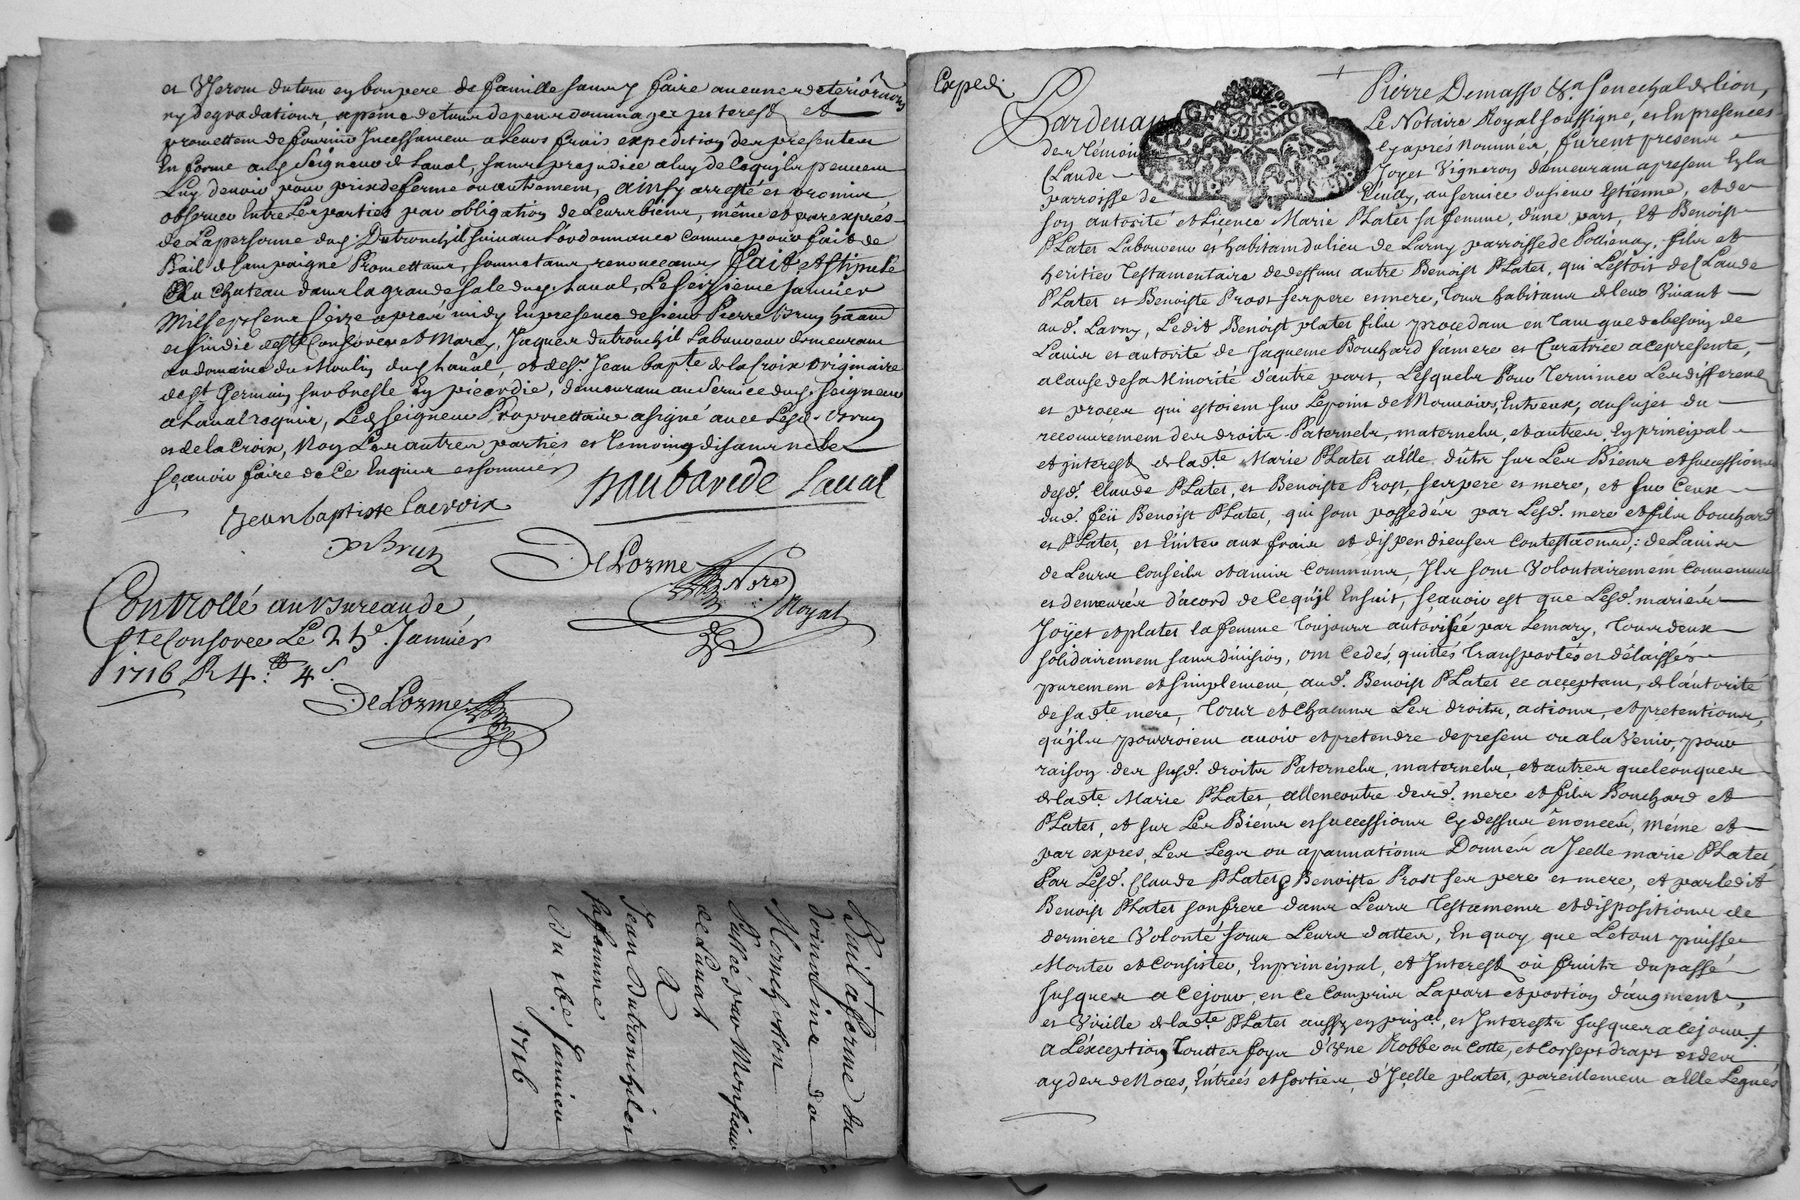 et Useront du tout en bon pere de famille sans y faire aucunes deteriorãons
ny degradations, a peine de tous depens dommages interest et
promettent de fournir Incessament a leurs frais expedition des presentes
En forme aud. Seigneur de Laval, sans prejudice a luy de ce qu'ils peuvent
Luy devoir pour prix de ferme ou autrement, ainsy arresté et promis
observer Entre Les parties par obligation de Leurs biens, même et par exprés
de La personne dud. Dutronchil suivant L'ordonnance comme pour fait de
Bail de Campaigne Promettans, soumettans, renonceans, fait et stipulé
Au chateau dans la grande sale dud. Laval, Le seizieme janvier
Mil sept cent seize aprés midy En presence de sieur Pierre Brun
et sindic de Ste Consorce et Marcy, Jaques dutronchil Laboureur demeurant
au domaine du Moulin dud. Laval, et de sr. Jean bapte de la Croix originaire
de St Germain sur bresle En picardie, demeurant au Service dud. Seigneur
a Laval requis, Led. Seigneur Proprietaire a signé avec Lesd. Brun
et de la Croix, Non Les autres parties et temoing disants ne le
sçavoir faire de ce Enquis et sommés
Jean baptiste lacroix
panbavede Laval
P Brun
DeLorme
Nre
Royal
Controllé au Bureau de
Ste Consorce Le 25e Janvier
1716 R 4.# 4s.
DeLorme
Bail a ferme du
domaine de
Passée par Monsieur
de Laval
A
Jean Dutronchil et
sa femme
Du 16e Janvier
1716
Exped.
Pardevant
Pierre Demasso Sr Senechal de lion,
Le Notaire Royal soussigné, et En presences
des témoins
Cy aprés Nommés, furent presens
Claude
Joyet Vigneron demeurant a present En la
parroisse de
au service du sieur Estienne, et de
son autorité et Licence Marie PLatet sa femme, d'une part, Et Benoist
PLatet Laboureur et habitant du lieu de Larny parroisse de Pollienay, fils et
heritier Testamentaire de deffunt autre Benoist PLatet, qui L'estoit de Claude
PLatet et Benoiste Prost ses pere et mere, Tous habitans de leur Vivant
aud. Larny, Ledit Benoist platet fils procedant en tant que de besoin de
L'avis et autorité de Jaqueme Bouchard sa mere et Curatrice a ce presente,
a cause de sa Minorité d'autre part, Lesquels Pour Terminer Les differens
et procés qui estoient sur Le point de Mouvoir Entreux, au sujet du
recouvrement des droits Paternels, maternels, et autres, En principal
et interest de lad.te Marie PLatet a Elle dûts sur Les Biens et successions
desd. Claude PLatet, et Benoiste Prost, ses pere et mere, et sur Ceux
dud. feü Benoist PLatet, qui sont possedés par Lesd. mere et fils bouchard
et PLatet, et Eviter aux frais et dispendieuses contestãons; de L'avis
de Leurs Conseils et amis communs, Ils sont Volontairement convenus
et demeurés d'acord de ce qu'il Ensuit, sçavoir est que Lesd. mariés
Joyet et platet la femme Toujours autorisée par Le mary, Tous deux
solidairement sans division, ont cedés, quittés Transportés et délaissés
purement et simplement, aud. Benoist PLatet ce acceptant, de l'autorité
de sadte mere, Tous et Chacuns Les droits, actions, et pretentions,
qu'ils pourroient avoir et pretendre de present ou a la Venir, pour
raison des susd. droits Paternels, maternels, et autres quelconques
de ladte Marie PLatet, allencontre desd. mere et fils Bouchard et
PLatet, et sur Les Biens et successions Cy dessus énoncés, méme et
par exprés, Les Legs ou apannations Donnés a Jcelle marie PLatet
Par Lesd. Claude PLatet & Benoiste Prost ses pere et mere, et par ledit
Benoist PLatet son frere dans Leurs Testamens et dispositions de
derniere Volonté sous Leurs dattes, En quoy que Le tout puisse
Monter et Consister, En principal, et Interest ou fruits du passé
Jusques a ce jour, en ce Compris La part et portion d'augment,
et Virille de ladte PLatet aussy en prizal, et Interests jusques a ce jour /.
a L'exception Touttes foys d'Une Robbe ou cotte, et Corsept draps et des
ayder de Noces, Entrées et sorties, d'Jcelle platet, pareillement a Elle Legués